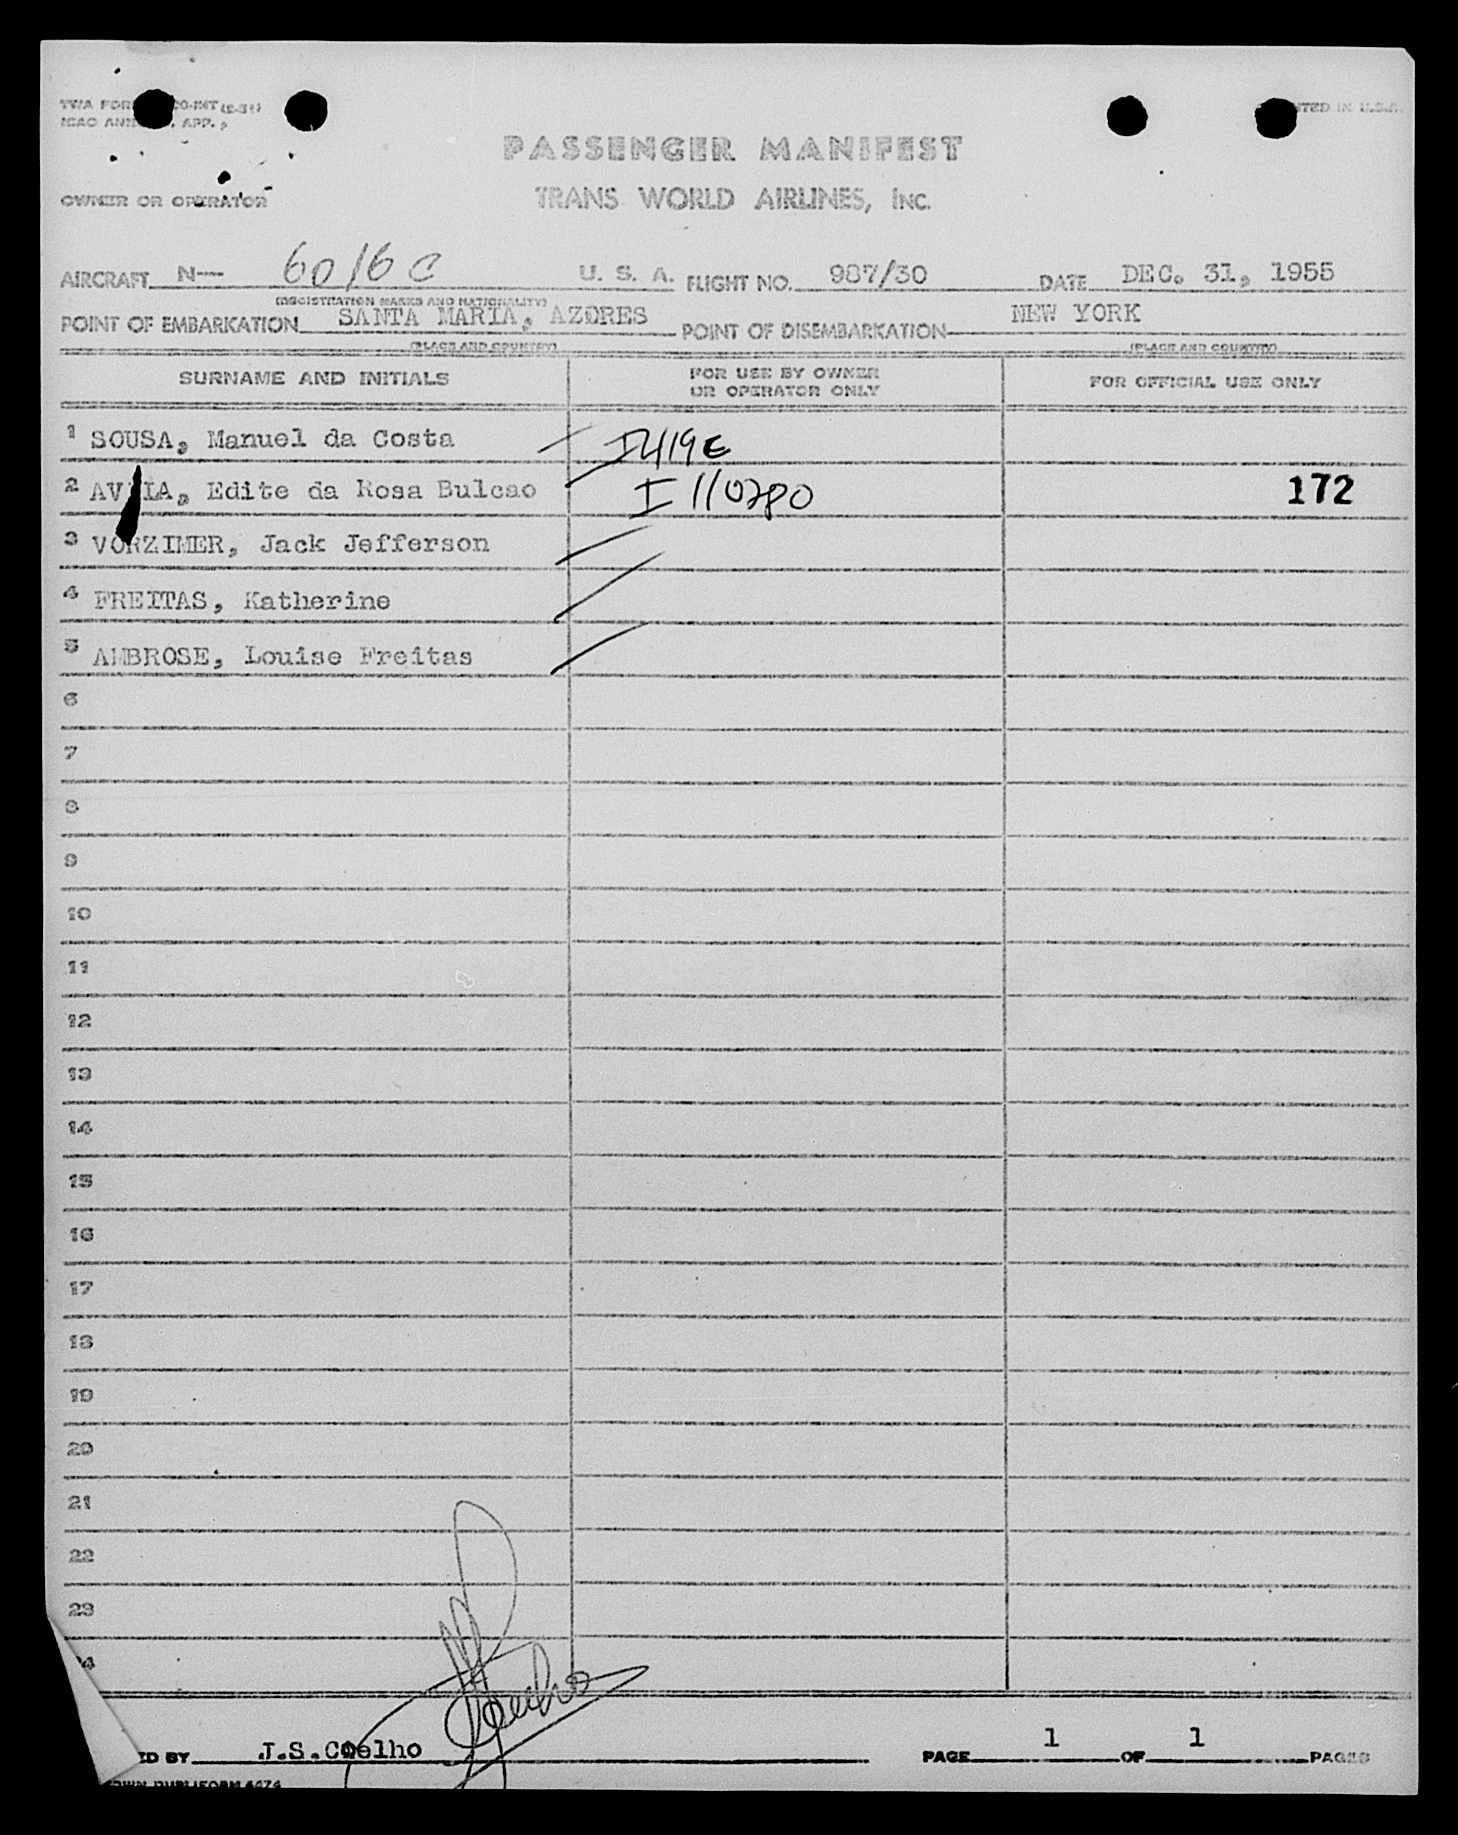 TWA FORM CO-INT (2-51)
ICAO APP. 9
PRINTED IN U.S.A.
PASSENGER MANIFEST
OWNER OR OPERATOR TRANS WORLD AIRLINES, INC.
AIRCRAFT N-- 6016C U. S. A. FLIGHT NO. 987/30 DATE DEC. 31, 1955
(REGISTRATION MARKS AND NATIONALITY)
POINT OF EMBARKATION SANTA MARIA, AZORES POINT OF DISEMBARKATION NEW YORK
(PLACE AND COUNTRY) (PLACE AND COUNTRY)
SURNAME AND INITIALS FOR USE BY OWNER OR OPERATOR ONLY FOR OFFICIAL USE ONLY
1 SOUSA, Manuel da Costa I419E
2 AVILA, Edite da Rosa Bulcao I 110780 172
3 VORZIMER, Jack Jefferson
4 FREITAS, Katherine
5 AMBROSE, Louise Freitas
6
7
8
9
10
11
12
13
14
15
16
17
18
19
20
21
22
23
24
BY J.S.Coelho PAGE 1 OF 1 PAGES